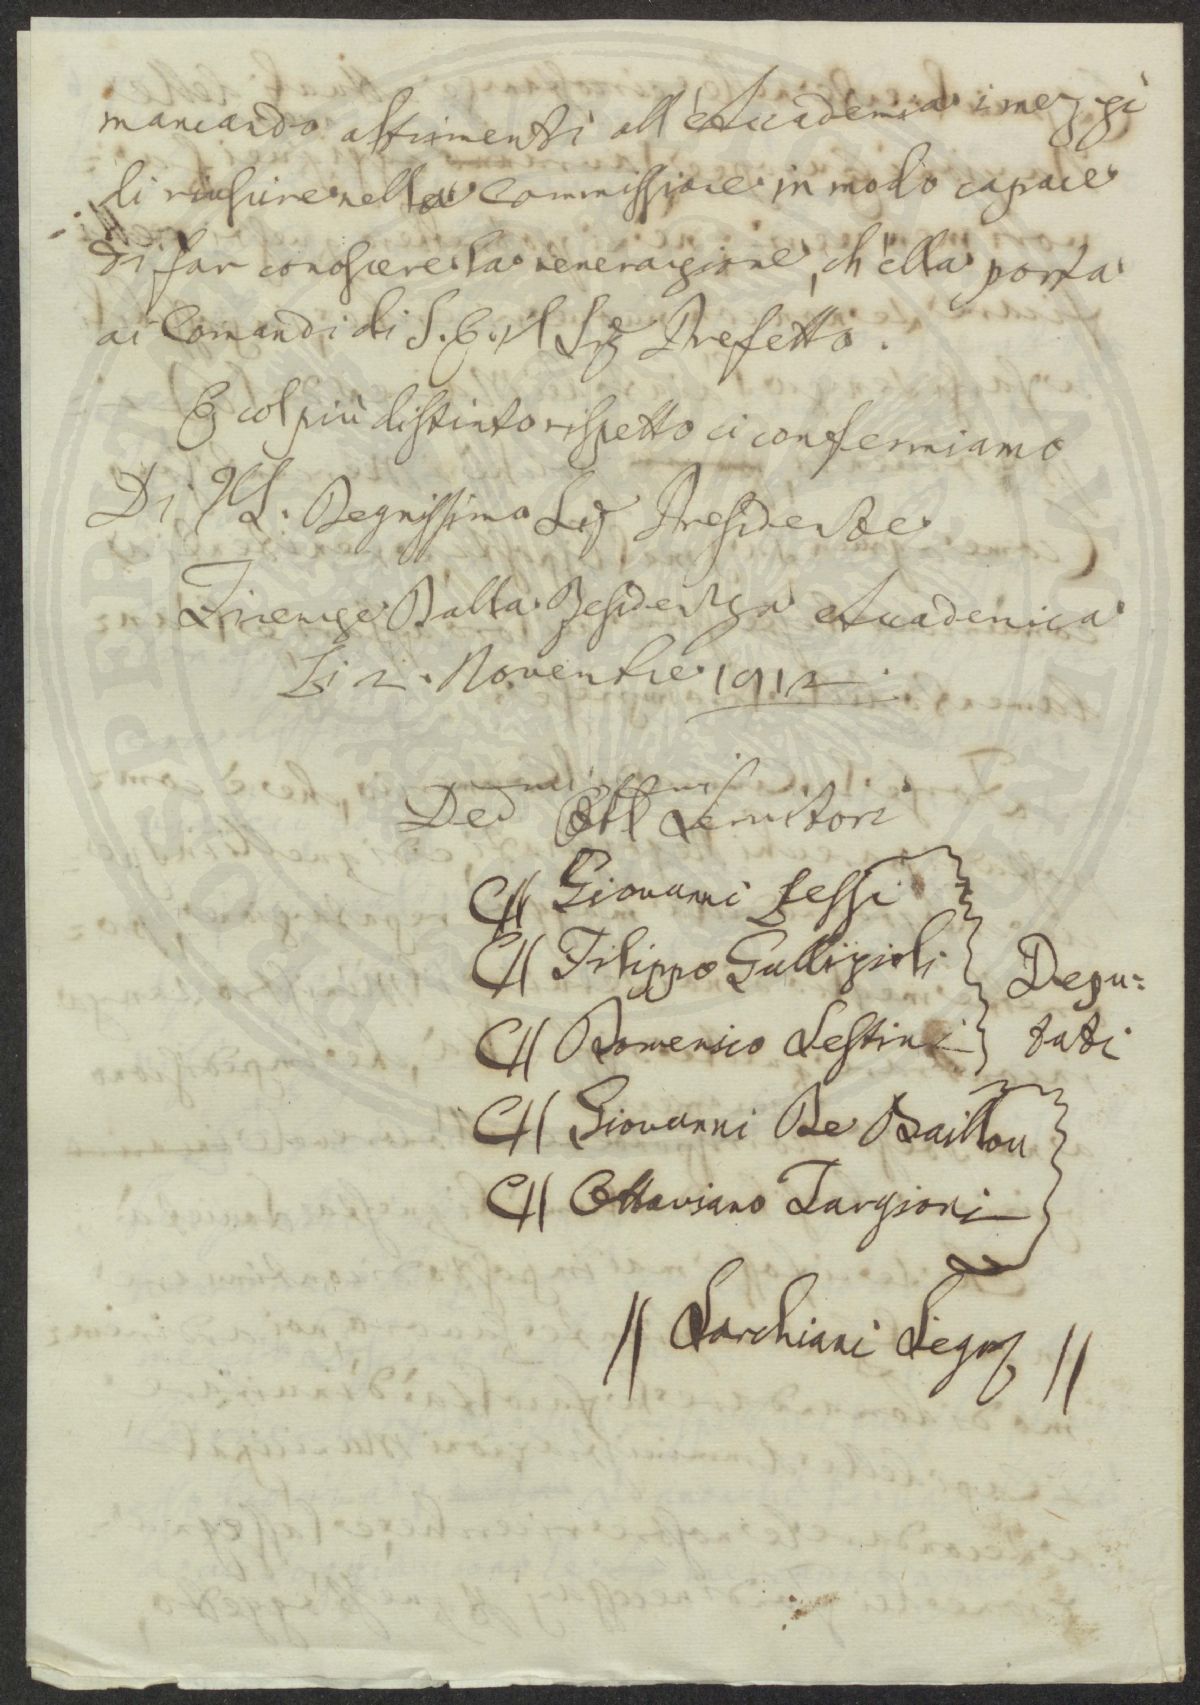 mancando altrimenti all'Accademia i mezzi
di riuscire nella Commissione in modo capace
di far conoscere la venerazione, ch'ella porta
ai Comandi di S. E. il Sig Prefetto.
E col più distinto rispetto ci confermiamo
Di VS. Degnissimo Sig Presidente
Firenze Dalla Residenza Accademica
Li 2. Novembre 1812
Servitori
Giovanni Lessi
Filippo Gallizioli
Depu=
Domenico Sestini
tati
Giovanni De Baillou
Ottaviano Targioni
// Sarchiani Segr //